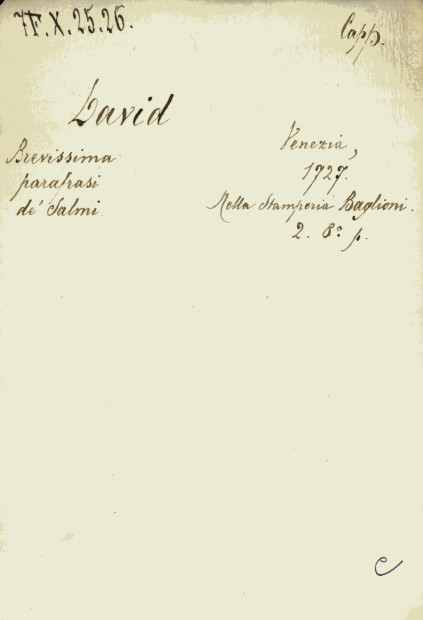 7F.X.25.26.
Capp.
David
Brevissima
parafrasi
de' Salmi
Venezia,
1727.
Nella Stamperia Baglioni.
2. 8º p.
C